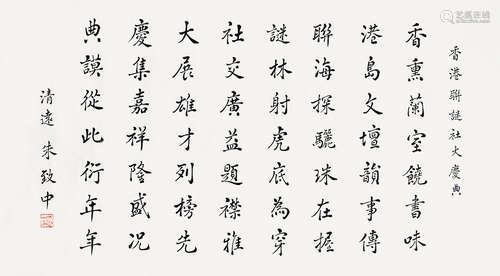 香港聯謎社大慶典
香熏蘭室饒書味
港島文壇韻事傳
聯海探驪珠在握
謎林射虎底為穿
社交廣益題襟雅
大展雄才列榜先
慶集嘉祥隆盛況
典謨從此衍年年
清遠 朱致中
艺典中国